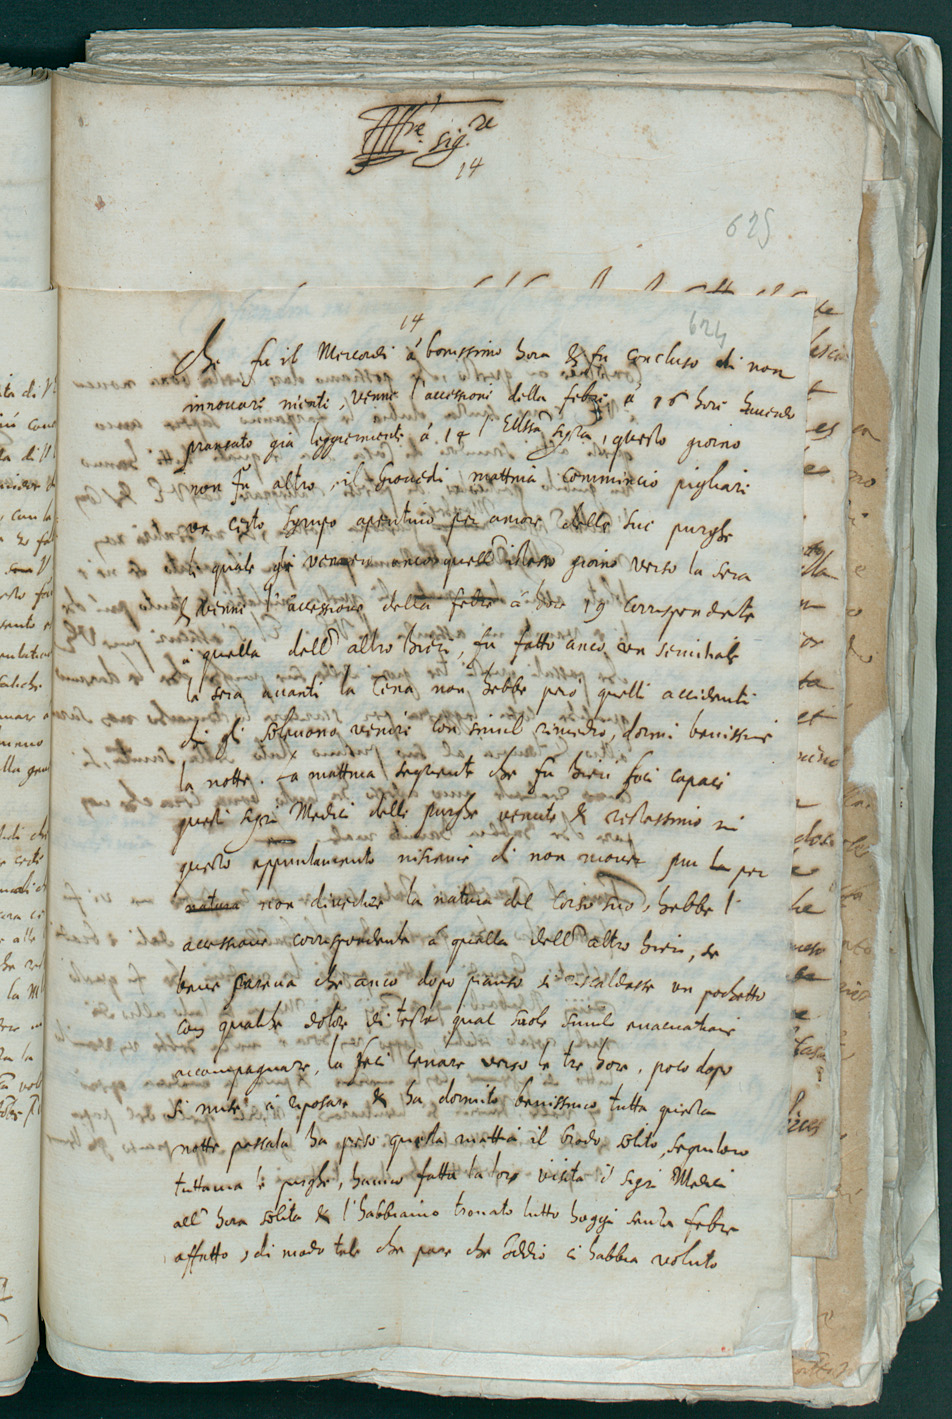 Ill.re sig.re
14
625
14
624
che fu il Mercordi à bonissima hora & fu concluso di non
innovare niente, venne l'accessione della febre à 16 hore havendo
pransato già leggiermente à 14 l' Ill.ma Sig.ra, questo giorno
non fu altro, il Giovedi mattina comminciò pigliare
un certo syropo aperitivo per amore delle sue purghe
le quale gli vennero ancor quell' istesso giorno verso la sera
& venne l'accessione della febre à hore 19 correspondente
à quella dell' altro hieri, fu fatto anco un servitiale
la sera avanti la Cena non hebbe però quelli accidenti
che gli solevono venire con simil rimedio, dormi benissimo
la notte. La mattina seguente che fu hieri feci capaci
questi Sig.ri Medici delle purghe venute & restassimo in
questo appuntamento insieme di non movere piu la per
natura non divertire la natura del Corso suo, hebbe l'
accessione correspondente à quella dell' altro hieri, se
bene pareva che anco dopo pranso si riscaldasse un pochetto
con qualche dolore di testa qual suole simile evacuatione
accompagnare, la feci Cenare verso le tre hore, poco dopo
si mise à riposare & ha dormito benissimo tutta questa
notte passata ha preso questa mattina il brodo solito, seguitano
tuttavia le purghe, hanno fatta la loro visita i Sig.ri Medici
all' hora solita & l'habbiamo trovato tutto hoggi senza febre
affatto, di modo tale che pare che Iddio ci habbia voluto